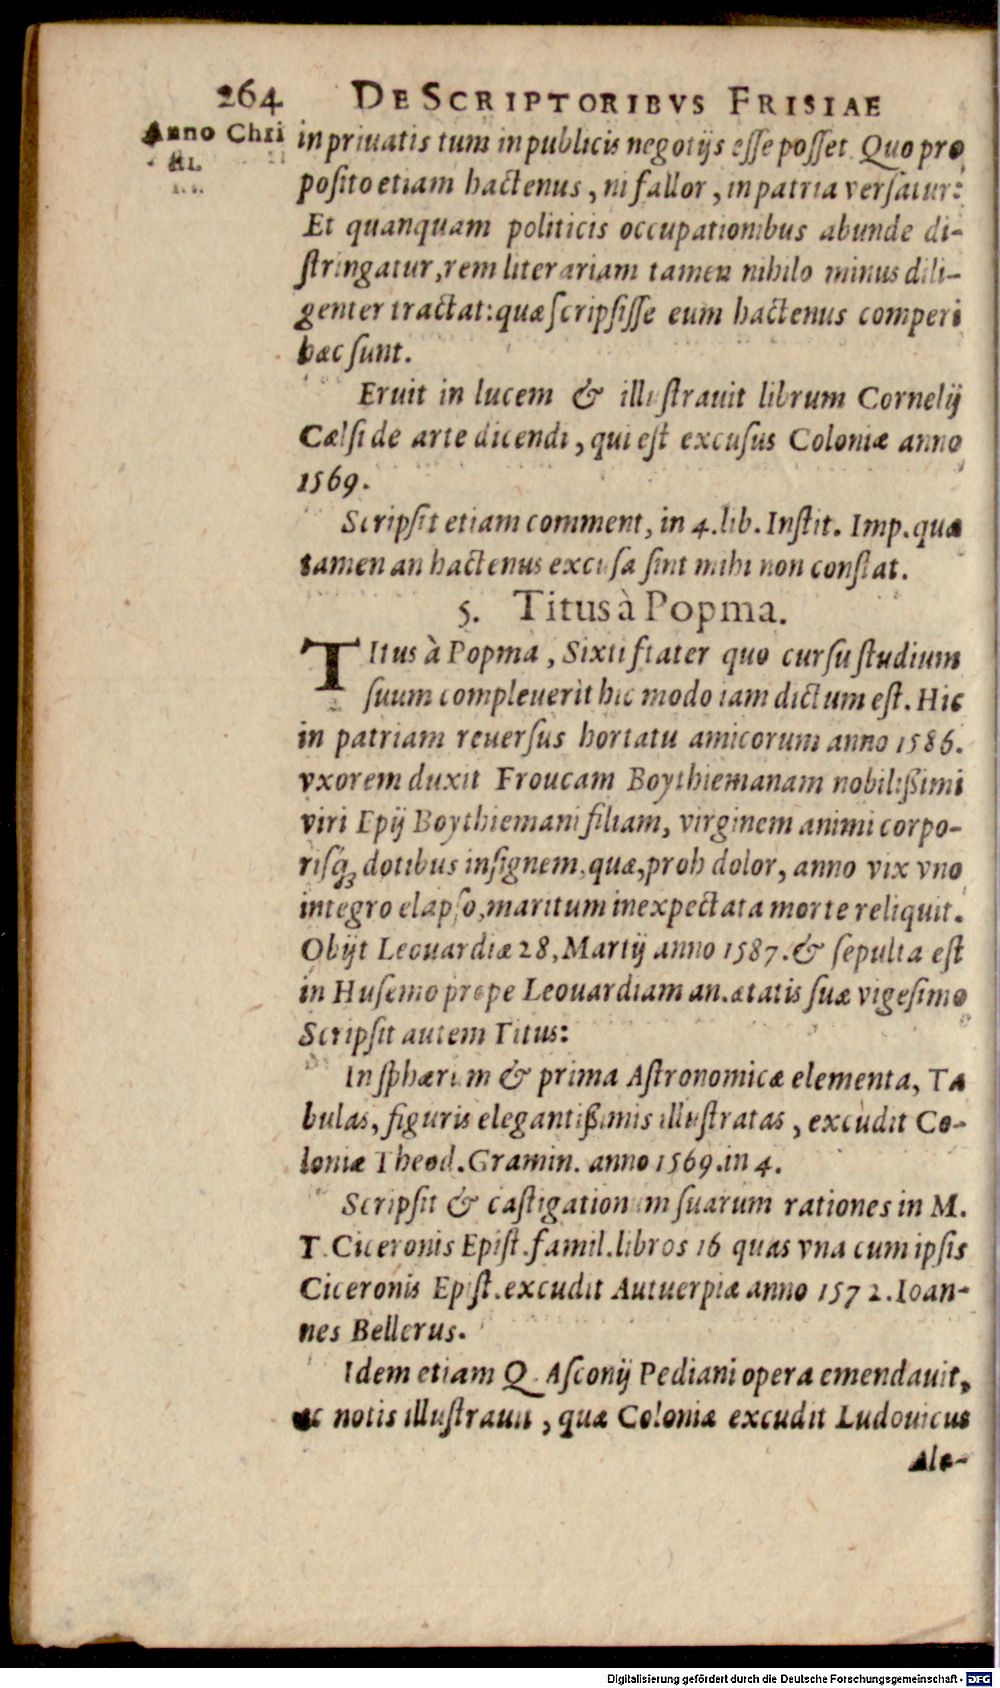 264 DE SCRIPTORIBVS FRISIAE
Anno Chri
in priuatis tum in publicis negotijs eſſe poſſet. Quo pro
poſito etiam hactenus, ni fallor, in patria verſatur:
Et quanquam politicis occupationibus abunde di-
ſtringatur, rem literariam tamen nihilo minus dili-
genter tractat: quæ ſcripſiſſe eum hactenus comperi
hæc ſunt.
Eruit in lucem & illuſtrauit librum Cornelij
Cælſi de arte dicendi, qui eſt excuſus Coloniæ anno
1569.
Scripſit etiam comment, in 4. lib. Inſtit. Imp. quæ
tamen an hactenus excuſa ſint mihi non conſtat.
5. Titus à Popma.
TItus à Popma, Sixti frater quo curſu ſtudium
ſuum compleuerit hic modo iam dictum eſt. Hic
in patriam reuerſus hortatu amicorum anno 1586.
vxorem duxit Froucam Boythiemanam nobilißimi
viri Epij Boythiemani filiam, virginem animi corpo-
risq́ꝫ dotibus inſignem, quæ, proh dolor, anno vix vno
integro elapſo, maritum inexpectata morte reliquit.
Obijt Leouardiæ 28, Martij anno 1587. & ſepulta eſt
in Huſemo prope Leouardiam an. ætatis ſuæ vigeſimo
Scripſit autem Titus:
In ſphærum & prima Aſtronomicæ elementa, Ta
bulas, figuris elegantißimis illuſtratas, excudit Co-
loniæ Theod. Gramin. anno 1569. in 4.
Scripſit & caſtigationum ſuarum rationes in M.
T. Ciceronis Epiſt. famil. libros 16 quas vna cum ipſis
Ciceronis Epiſt. excudit Autuerpiæ anno 1572. Ioan-
nes Bellerus.
Idem etiam Q. Aſconij Pediani opera emendauit,
ac notis illuſtrauit, quæ Coloniæ excudit Ludouicus
Ale-
Digitalisierung gefördert durch die Deutsche Forschungsgemeinschaft - DFG